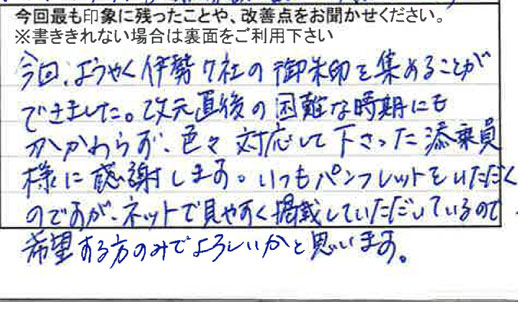 今回最も印象に残ったことや、改善点をお聞かせください。
※書ききれない場合は裏面をご利用下さい
今回、ようやく伊勢7社の御朱印を集めることが
できました。改元直後の困難な時期にも
かかわらず、色々対応して下さった添乗員
様に感謝します。いつもパンフレットをいただく
のですが、ネットで見やすく掲載していただいているので
希望する方のみでよろしいかと思います。